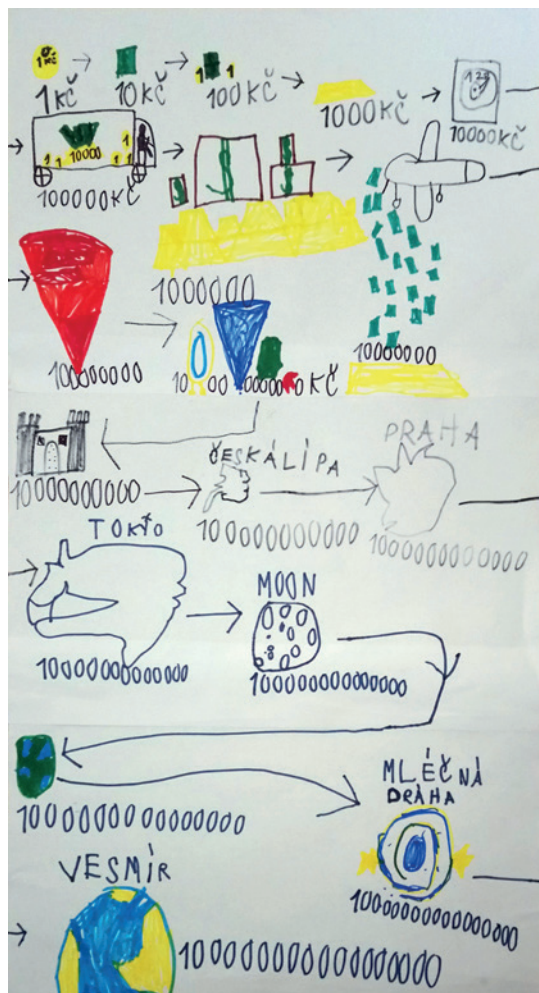 1 KČ
1KČ
10KČ
1 1
100KČ
1000KČ
10000KČ
10000
1 1 1 1
100000KČ
1000000
10000000
100000000
KČ
10000000000
ČESKÁ LÍPA
100000000000
PRAHA
1000000000000
TOKYO
10000000000000
MOON
100000000000000
1000000000000000
MLÉČNÁ
DRÁHA
10000000000000000
VESMÍR
100000000000000000